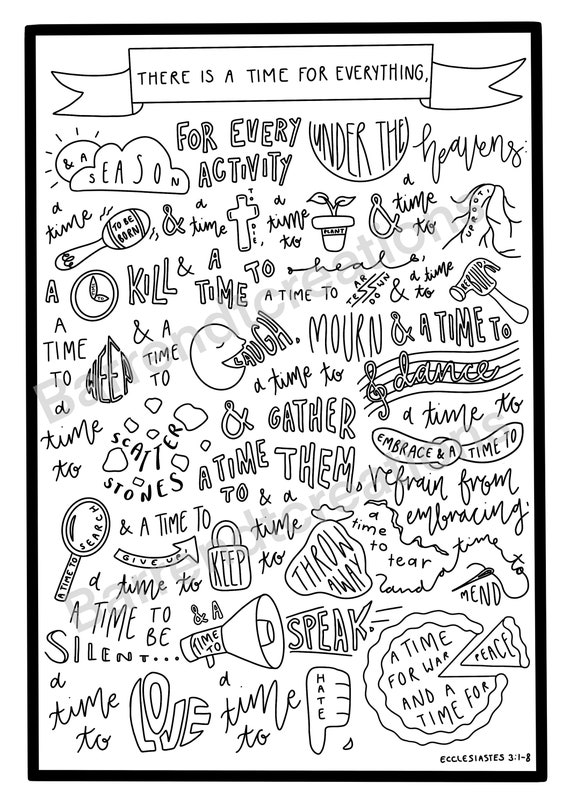 THERE IS A TIME FOR EVERYTHING,
& A SEASON FOR EVERY ACTIVITY UNDER THE heavens:
a time TO BE BORN & a time TO DIE, a time to PLANT & a time to UPROOT,
A KILL & A TIME TO heal, A TIME TO TEAR DOWN & a time to REBUILD,
A TIME TO WEEP & A TIME TO LAUGH, MOURN & A TIME TO dance
a time to SCATTER STONES & A TIME TO GATHER THEM, a time to EMBRACE & A TIME TO refrain from embracing;
A TIME TO SEARCH & A TIME TO GIVE UP, a time to KEEP & a time to THROW AWAY
a time to tear and a time to MEND
A TIME TO BE SILENT... & A TIME TO SPEAK.
a time to LOVE a time to HATE
A TIME FOR WAR AND A TIME FOR PEACE
ECCLESIASTES 3:1-8
Barrendtcreations
Barrendtcreations
Barrendtcreations